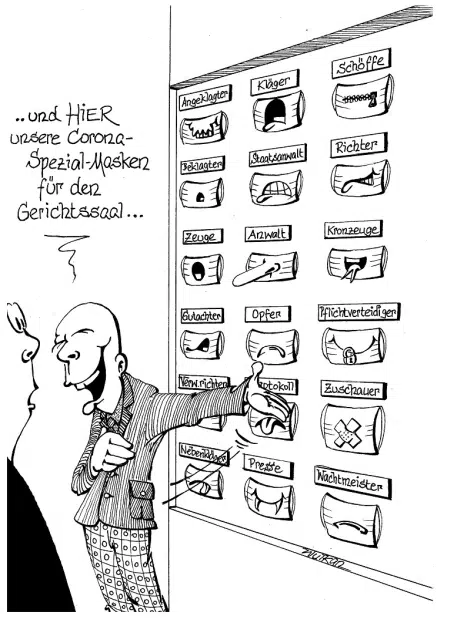 ..und HiER
unsere Corona-
Spezial-Masken
für den
Gerichtssaal...
Angeklagter
Kläger
Schöffe
Beklagter
Staatsanwalt
Richter
Zeuge
Anwalt
Kronzeuge
Gutachter
Opfer
Pflichtverteidiger
Verw.richter
Zuschauer
Nebenkläger
Presse
Wachtmeister